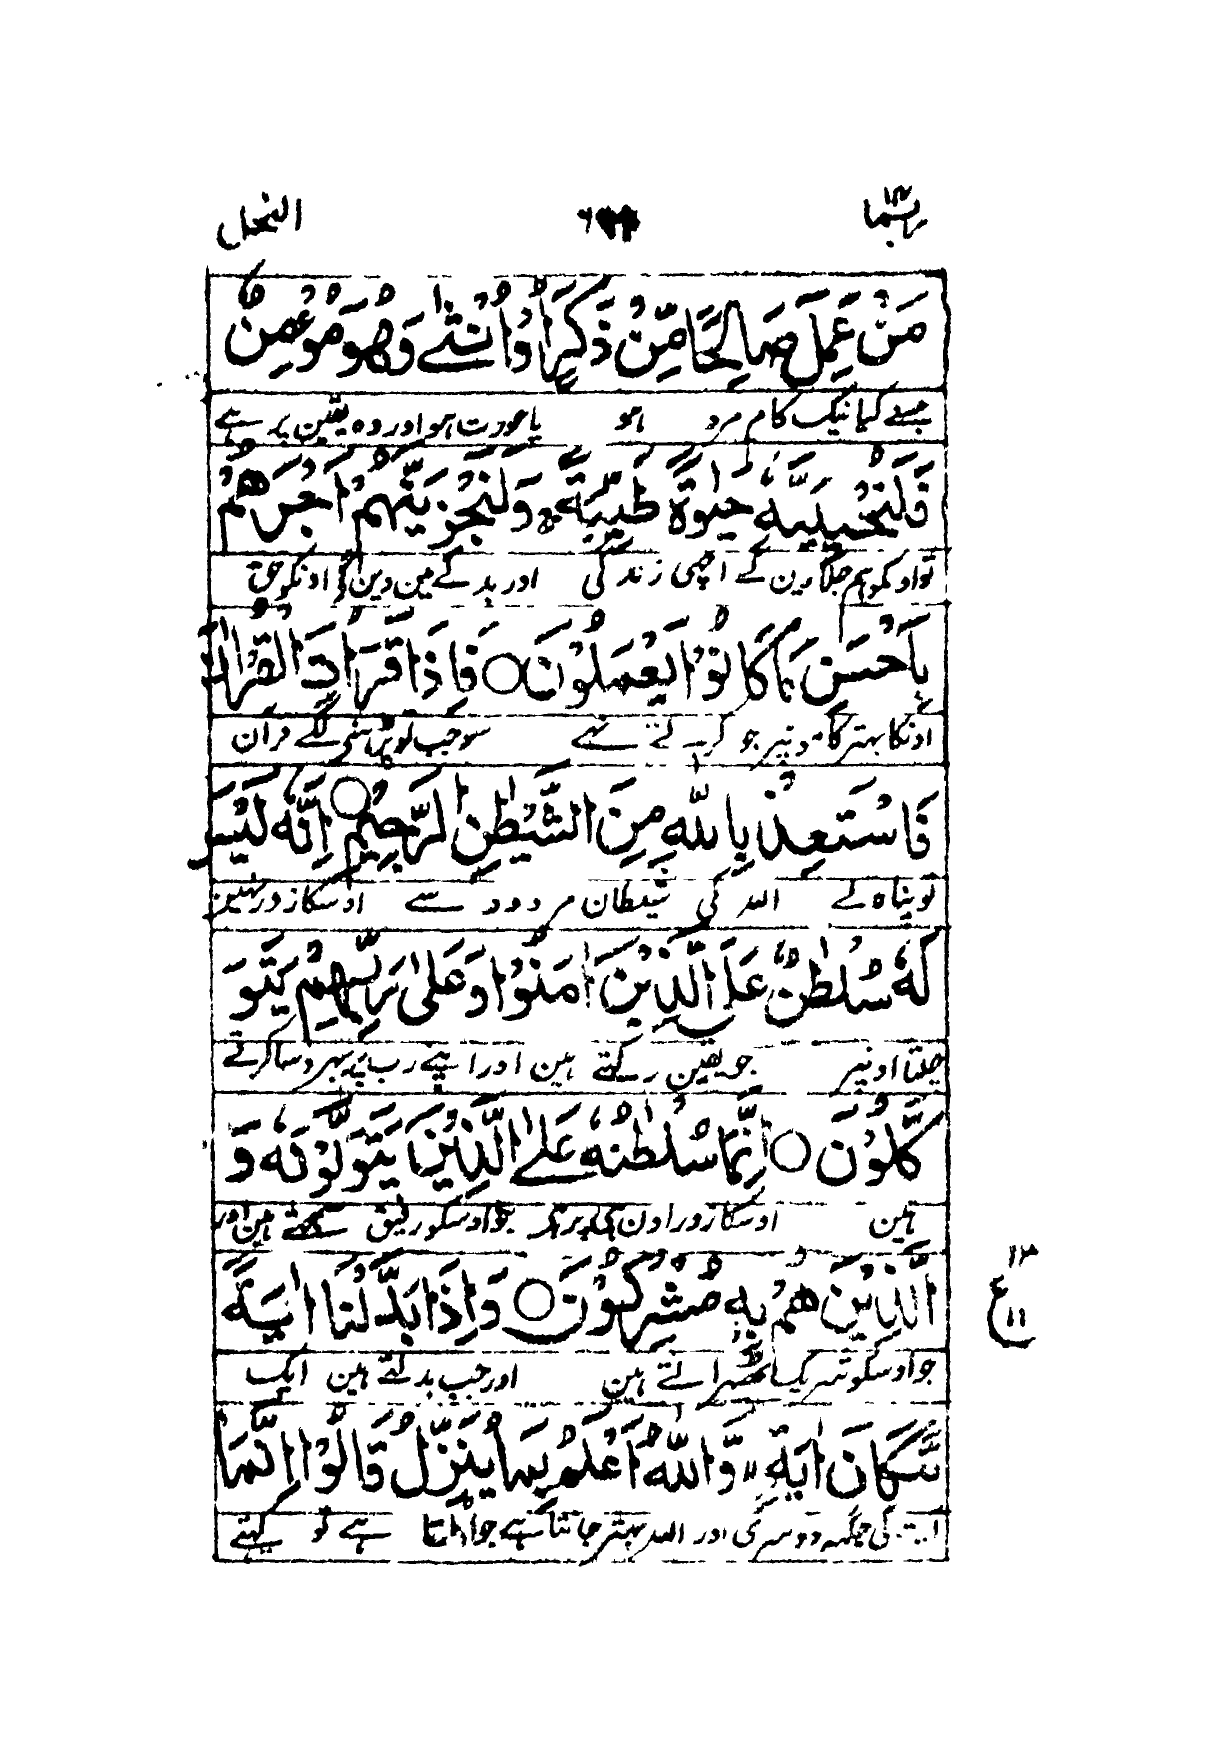 ربما ١٤
النحل
مَنْ عَمِلَ صَالِحًا مِّنْ ذَكَرٍ اَوْ اُنْثٰى وَهُوَ مُؤْمِنٌ
جسنے کیا نیک کام مرد ہو یا عورت ہو اور وہ یقین پر ہے
فَلَنُحْيِيَنَّهٗ حَيٰوةً طَيِّبَةً ۚ وَلَنَجْزِيَنَّهُمْ اَجْرَهُمْ
تو اوسکو ہم جلاوین گے اچھی زندگی اور بدلے مین دین گے اونکو حق
بِاَحْسَنِ مَا كَانُوْا يَعْمَلُوْنَ ○ فَاِذَا قَرَاْتَ الْقُرْاٰنَ
اونکا بہتر کامونپر جو کرتے تھے سو جب تو پڑھنے لگے قرآن
فَاسْتَعِذْ بِاللّٰهِ مِنَ الشَّيْطٰنِ الرَّجِيْمِ ○ اِنَّهٗ لَيْسَ
تو پناہ لے اللہ کی شیطان مردود سے اوسکا زور نہین
لَهٗ سُلْطٰنٌ عَلَى الَّذِيْنَ اٰمَنُوْا وَعَلٰى رَبِّهِمْ يَتَوَ
چلتا اونپر جو یقین رکھتے ہین اور اپنے رب پر بھروسا کرتے
كَّلُوْنَ ○ اِنَّمَا سُلْطٰنُهٗ عَلَى الَّذِيْنَ يَتَوَلَّوْنَهٗ وَ
ہین اوسکا زور اون ہی پر ہے جو اوسکو رفیق سمجھتے ہین اور
الَّذِيْنَ هُمْ بِهٖ مُشْرِكُوْنَ ○ وَاِذَا بَدَّلْنَا اٰيَةً
١٣ ع ١١
جو اوسکو شریک ٹھہراتے ہین اور جب بدلتے ہین ایک
مَّكَانَ اٰيَةٍ ۙ وَّاللّٰهُ اَعْلَمُ بِمَا يُنَزِّلُ قَالُوْا اِنَّمَا
آیت کی جگہہ دوسری اور اللہ بہتر جانتا ہے جو اوتارتا ہے تو کہتے